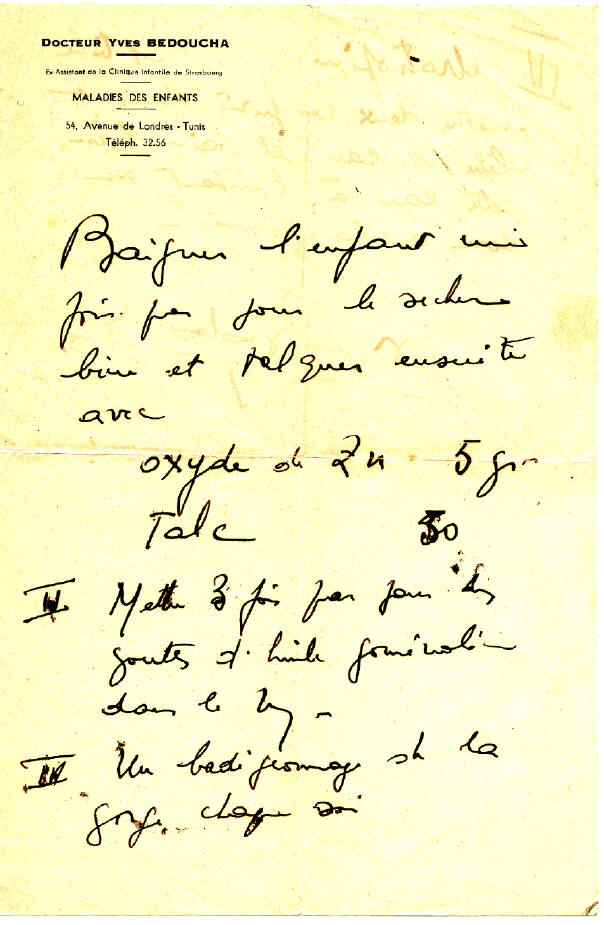 DOCTEUR YVES BEDOUCHA
Ex-Assistant de la Clinique Infantile de Strasbourg
MALADIES DES ENFANTS
54, Avenue de Londres - Tunis
Téléph. 32.56
Baigner l'enfant une
fois par jour le secher
bien et talquer ensuite
avec
oxyde de Zn 5 gr
Talc 50
II Mettre 3 fois par jour des
gouttes d'huile goménolée
dans le nez -
III Un badigeonnage de la
gorge chaque soir